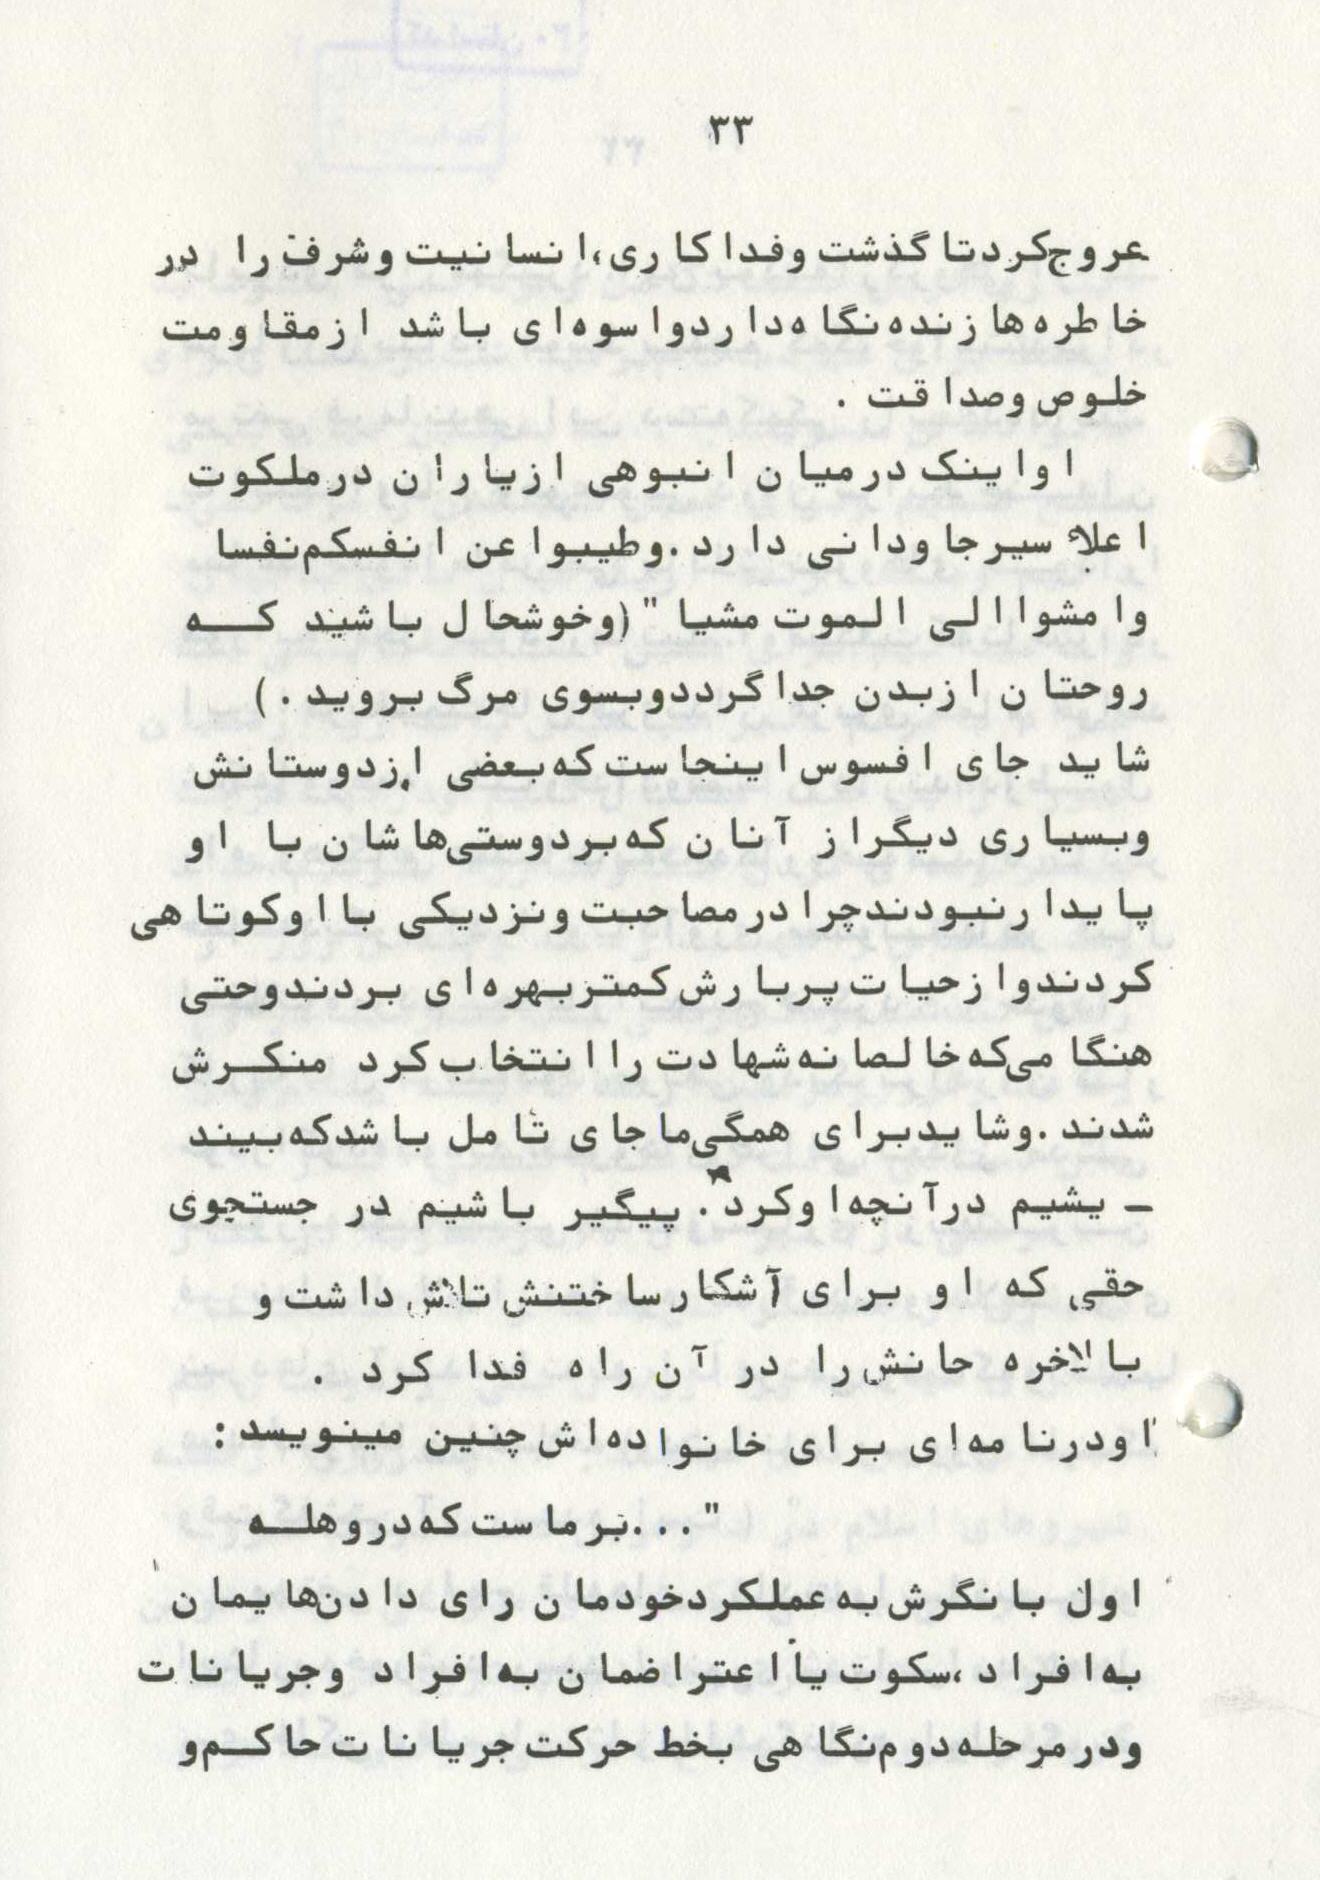 ۳۳
عروج‌کردتا گذشت وفداکاری،انسانیت وشرف را در
خاطره‌ها زنده‌نگاه‌داردواسوه‌ای باشد ازمقاومت
خلوص وصداقت .
اواینک درمیان انبوهی ازیاران درملکوت
اعلاء سیرجاودانی دارد.وطیبوا عن انفسکم‌نفسا
وامشواالی الموت مشیا "(وخوشحال باشید کـــه
روحتان ازبدن جداگرددوبسوی مرگ بروید .)
شاید جای افسوس اینجاست‌که‌بعضی ازدوستانش
وبسیاری دیگراز آنان که‌بردوستی‌هاشان با او
پایدارنبودندچرا درمصاحبت ونزدیکی بااوکوتاهی
کردندوازحیات پربارش‌کمتربهره‌ای بردندوحتی
هنگامی‌که‌خالصانه‌شهادت راانتخاب‌کرد منکـرش
شدند .وشایدبرای همگی‌ماجای تامل باشدکه‌بیند
ـ یشیم درآنچه‌اوکرد. پیگیر باشیم در جستجوی
حقی که او برای آشکارساختنش تلاش داشت و
بالاخره حانش را در آن راه فدا کرد .
اودرنامه‌ای برای خانواده‌اش چنین مینویسد:
"...برماست‌که‌دروهلــه
اول بانگرش به‌عملکردخودمان رای دادن‌هایمان
به‌افراد ،سکوت یااعتراضمان به‌افراد وجریانات
ودرمرحله‌دوم‌نگاهی بخط حرکت جریانات حاکــم‌و